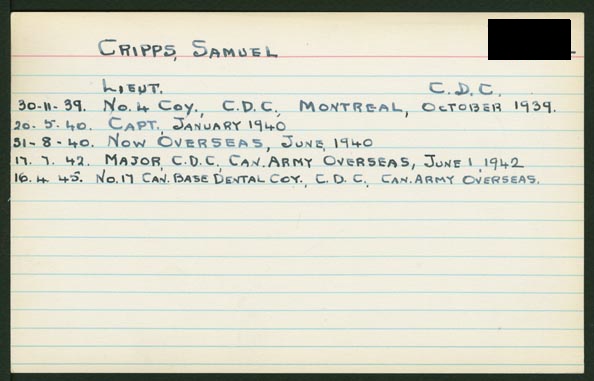 CRIPPS, SAMUEL
LIEUT. C.D.C.
30-11-39. No. 4 COY., C.D.C., MONTREAL, OCTOBER 1939.
20-5-40. CAPT., JANUARY 1940
31-8-40. NOW OVERSEAS, JUNE, 1940
17. 7. 42. MAJOR, C.D.C., CAN. ARMY OVERSEAS, JUNE 1, 1942
16. 4 45. No. 17 CAN. BASE DENTAL COY., C.D.C., CAN. ARMY OVERSEAS.